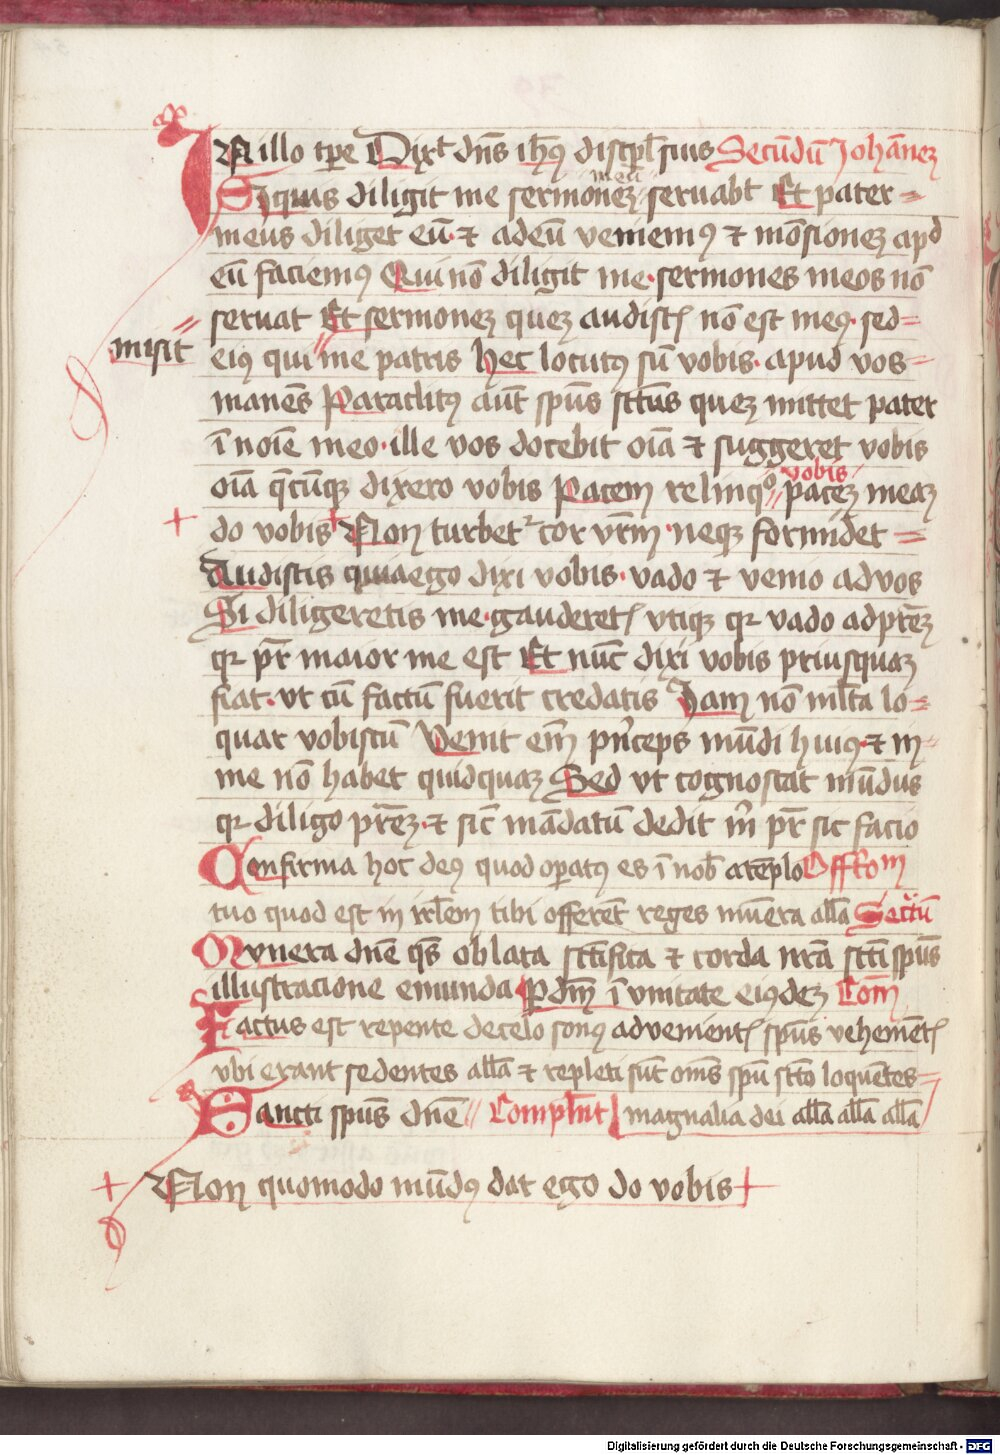 IN illo tp̄e Dixt dn̄s ih̄ꝰ discipl̄ suis Secūdū Johānez
Siquis diligit me sermonez meū seruabt Et pater
meus diliget eū ⁊ adeū veniemꝰ ⁊ mōsionez apd
eū faciemꝰ Qui nō diligit me sermones meos nō
seruat Et sermonez quez audistꝭ nō est meꝰ sed
misit
eiꝰ qui me patris hec locutꝰ sū vobis apud vos
manēs Paraclitꝰ aūt sp̄us sct̄us quez mittet pater
ī noīe meo ille vos docebit oīa ⁊ suggeret vobis
oīa q̄cūqꝫ dixero vobis Pacem relinqo vobis pacēz meaz
do vobis + Non turbet cor vr̄m neqꝫ formidet
Audistis quiaego dixi vobis vado ⁊ venio advos
Si diligeretis me gauderetꝭ vtiqꝫ qr vado adpr̄ez
qr pr̄ maior me est Et nūc dixi vobis priusquaz
fiat vt cū factū fuerit credatis Jam nō ml̄ta lo
quar vobiscū Venit em̄ pn̄ceps mūdi huiꝰ ⁊ in
me nō habet quidquaz Sed vt cognoscāt mūdus
qr diligo pr̄ez ⁊ sic̄ mādatū dedit m̄ pr̄ sic facio
Confirma hoc deꝰ quod opatꝰ es ī nob̄ atēplo Offtom
tuo quod est in irl̄em tibi offerēt reges munera all̄a Sectū
Munera dn̄e qs̄ oblata sct̄ifica ⁊ corda nr̄a sct̄i sp̄us
illustracione emunda P dm̄ ī vnitate eiꝰdez Com̄
Factus est repente decelo sonꝰ advenientꝭ sp̄us vehemētꝭ
vbi erant sedentes all̄a ⁊ repleti sūt om̄s sp̄u sct̄o loquētes
Sancti sp̄us dn̄e Compl̄nt magnalia dei all̄a all̄a all̄a
+ Non quomodo mūdꝰ dat ego do vobis +
Digitalisierung gefördert durch die Deutsche Forschungsgemeinschaft - DFG